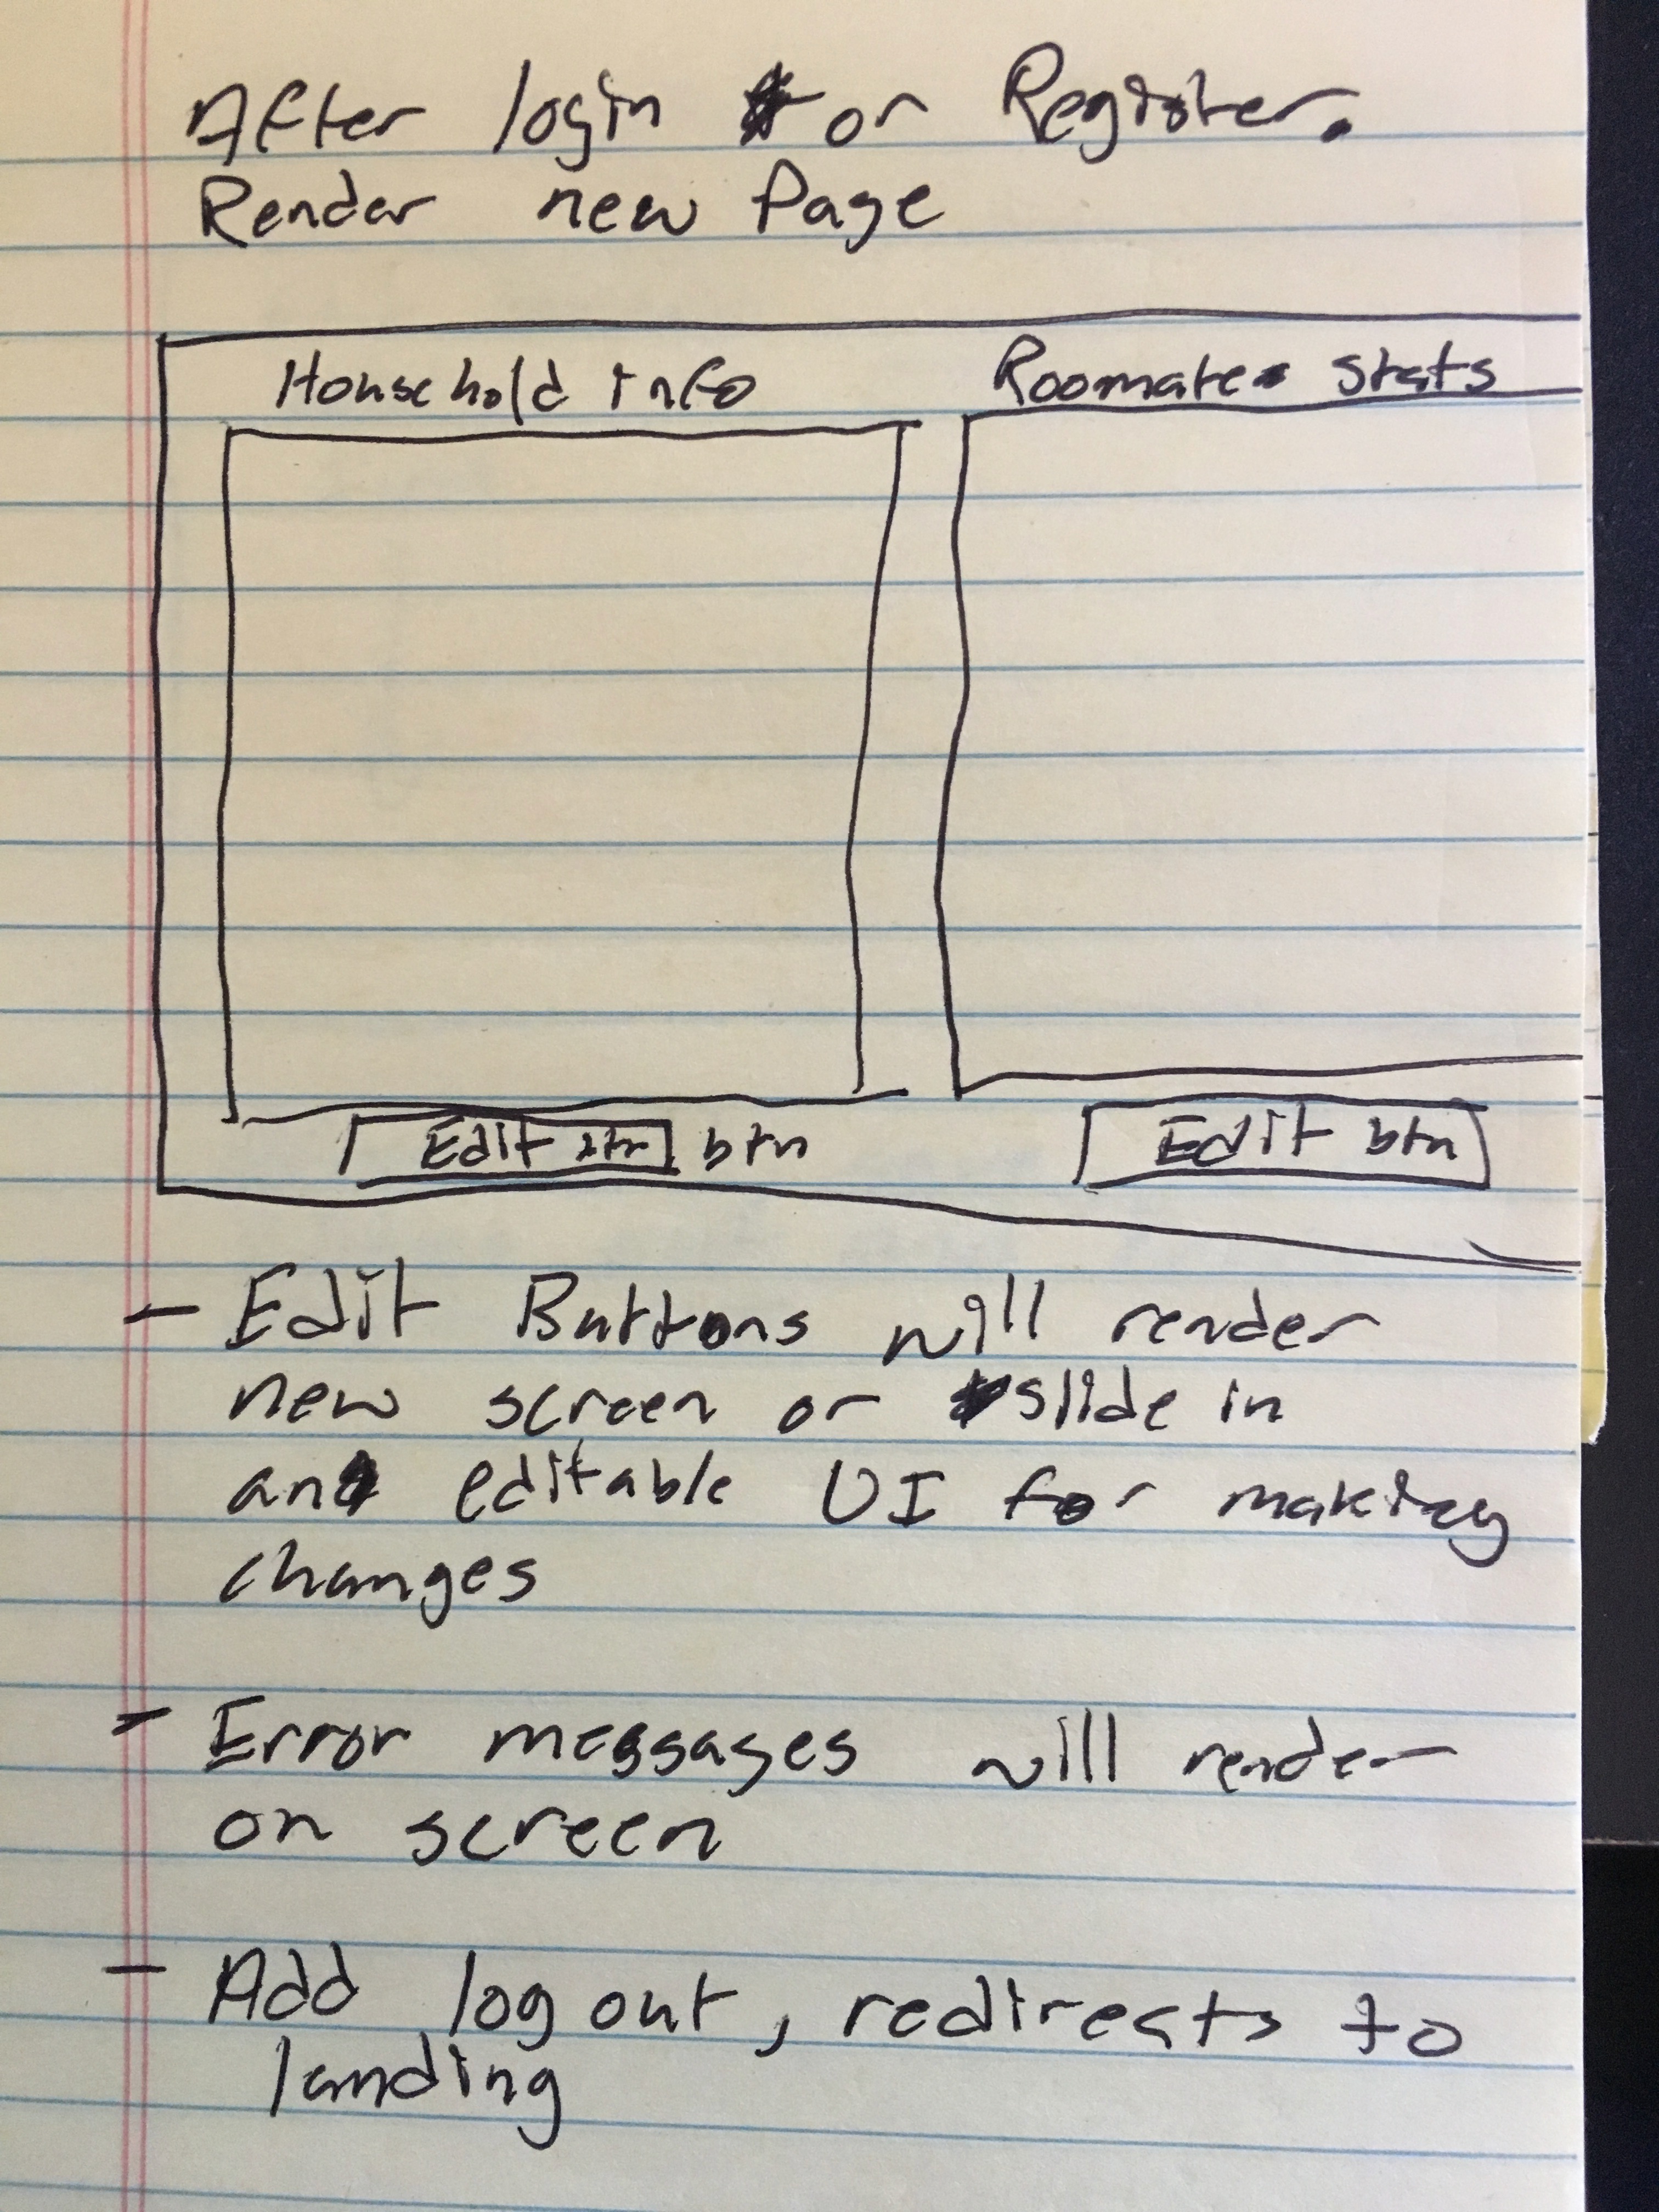 After login or Register.
Render new Page
Household info
Roomate stats
Edit btn
Edit btn
- Edit Buttons will render
new screen or slide in
an editable UI for making
changes
- Error messages will render
on screen
- Add log out, redirects to
landing